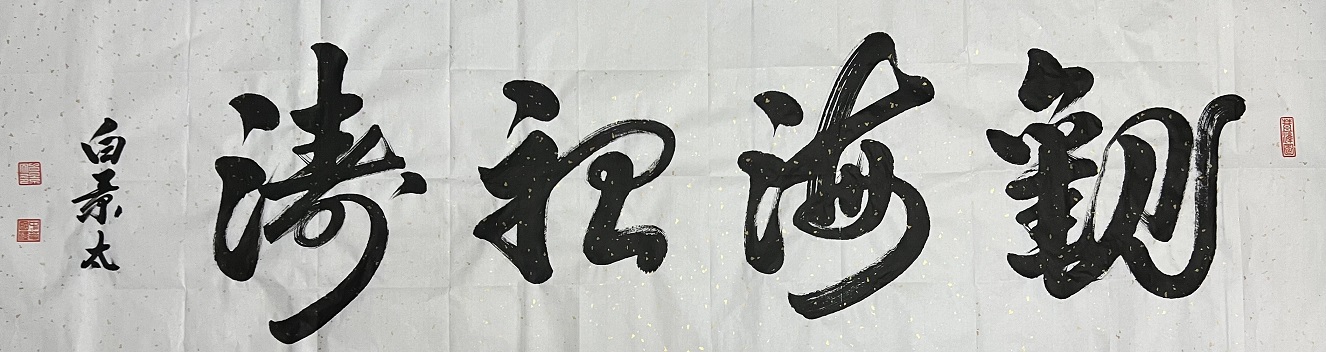 觀海聽濤
白景太